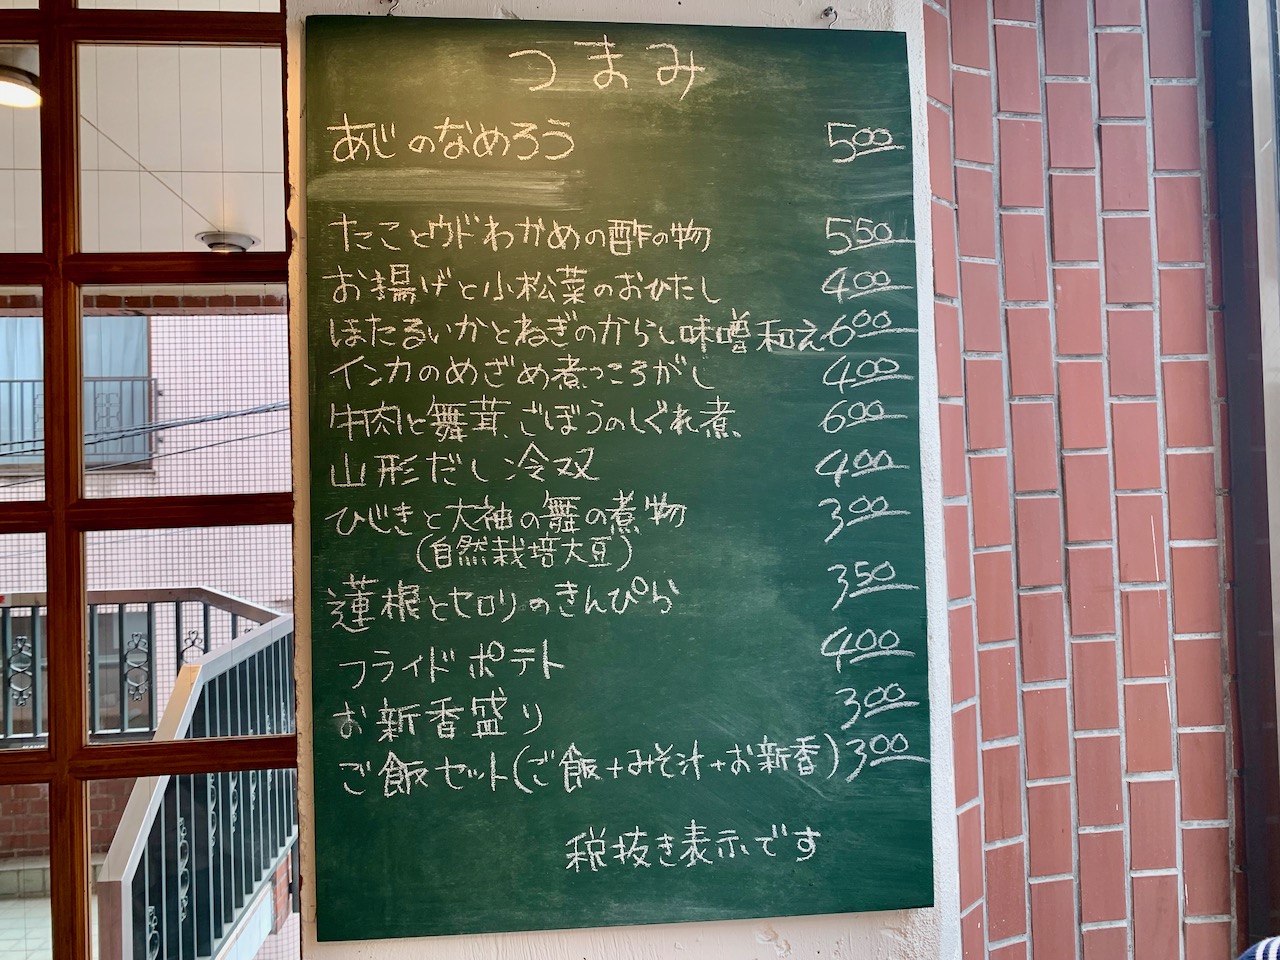 つまみ
あじのなめろう 500
たことウドわかめの酢の物 550
お揚げと小松菜のおひたし 400
ほたるいかとねぎのからし味噌和え 600
インカのめざめ煮っころがし 400
牛肉と舞茸、ごぼうのしぐれ煮 600
山形だし冷奴 400
ひじきと大袖の舞の煮物 300
(自然栽培大豆)
蓮根とセロリのきんぴら 350
フライドポテト 400
お新香盛り 300
ご飯セット(ご飯+みそ汁+お新香) 300
税抜き表示です